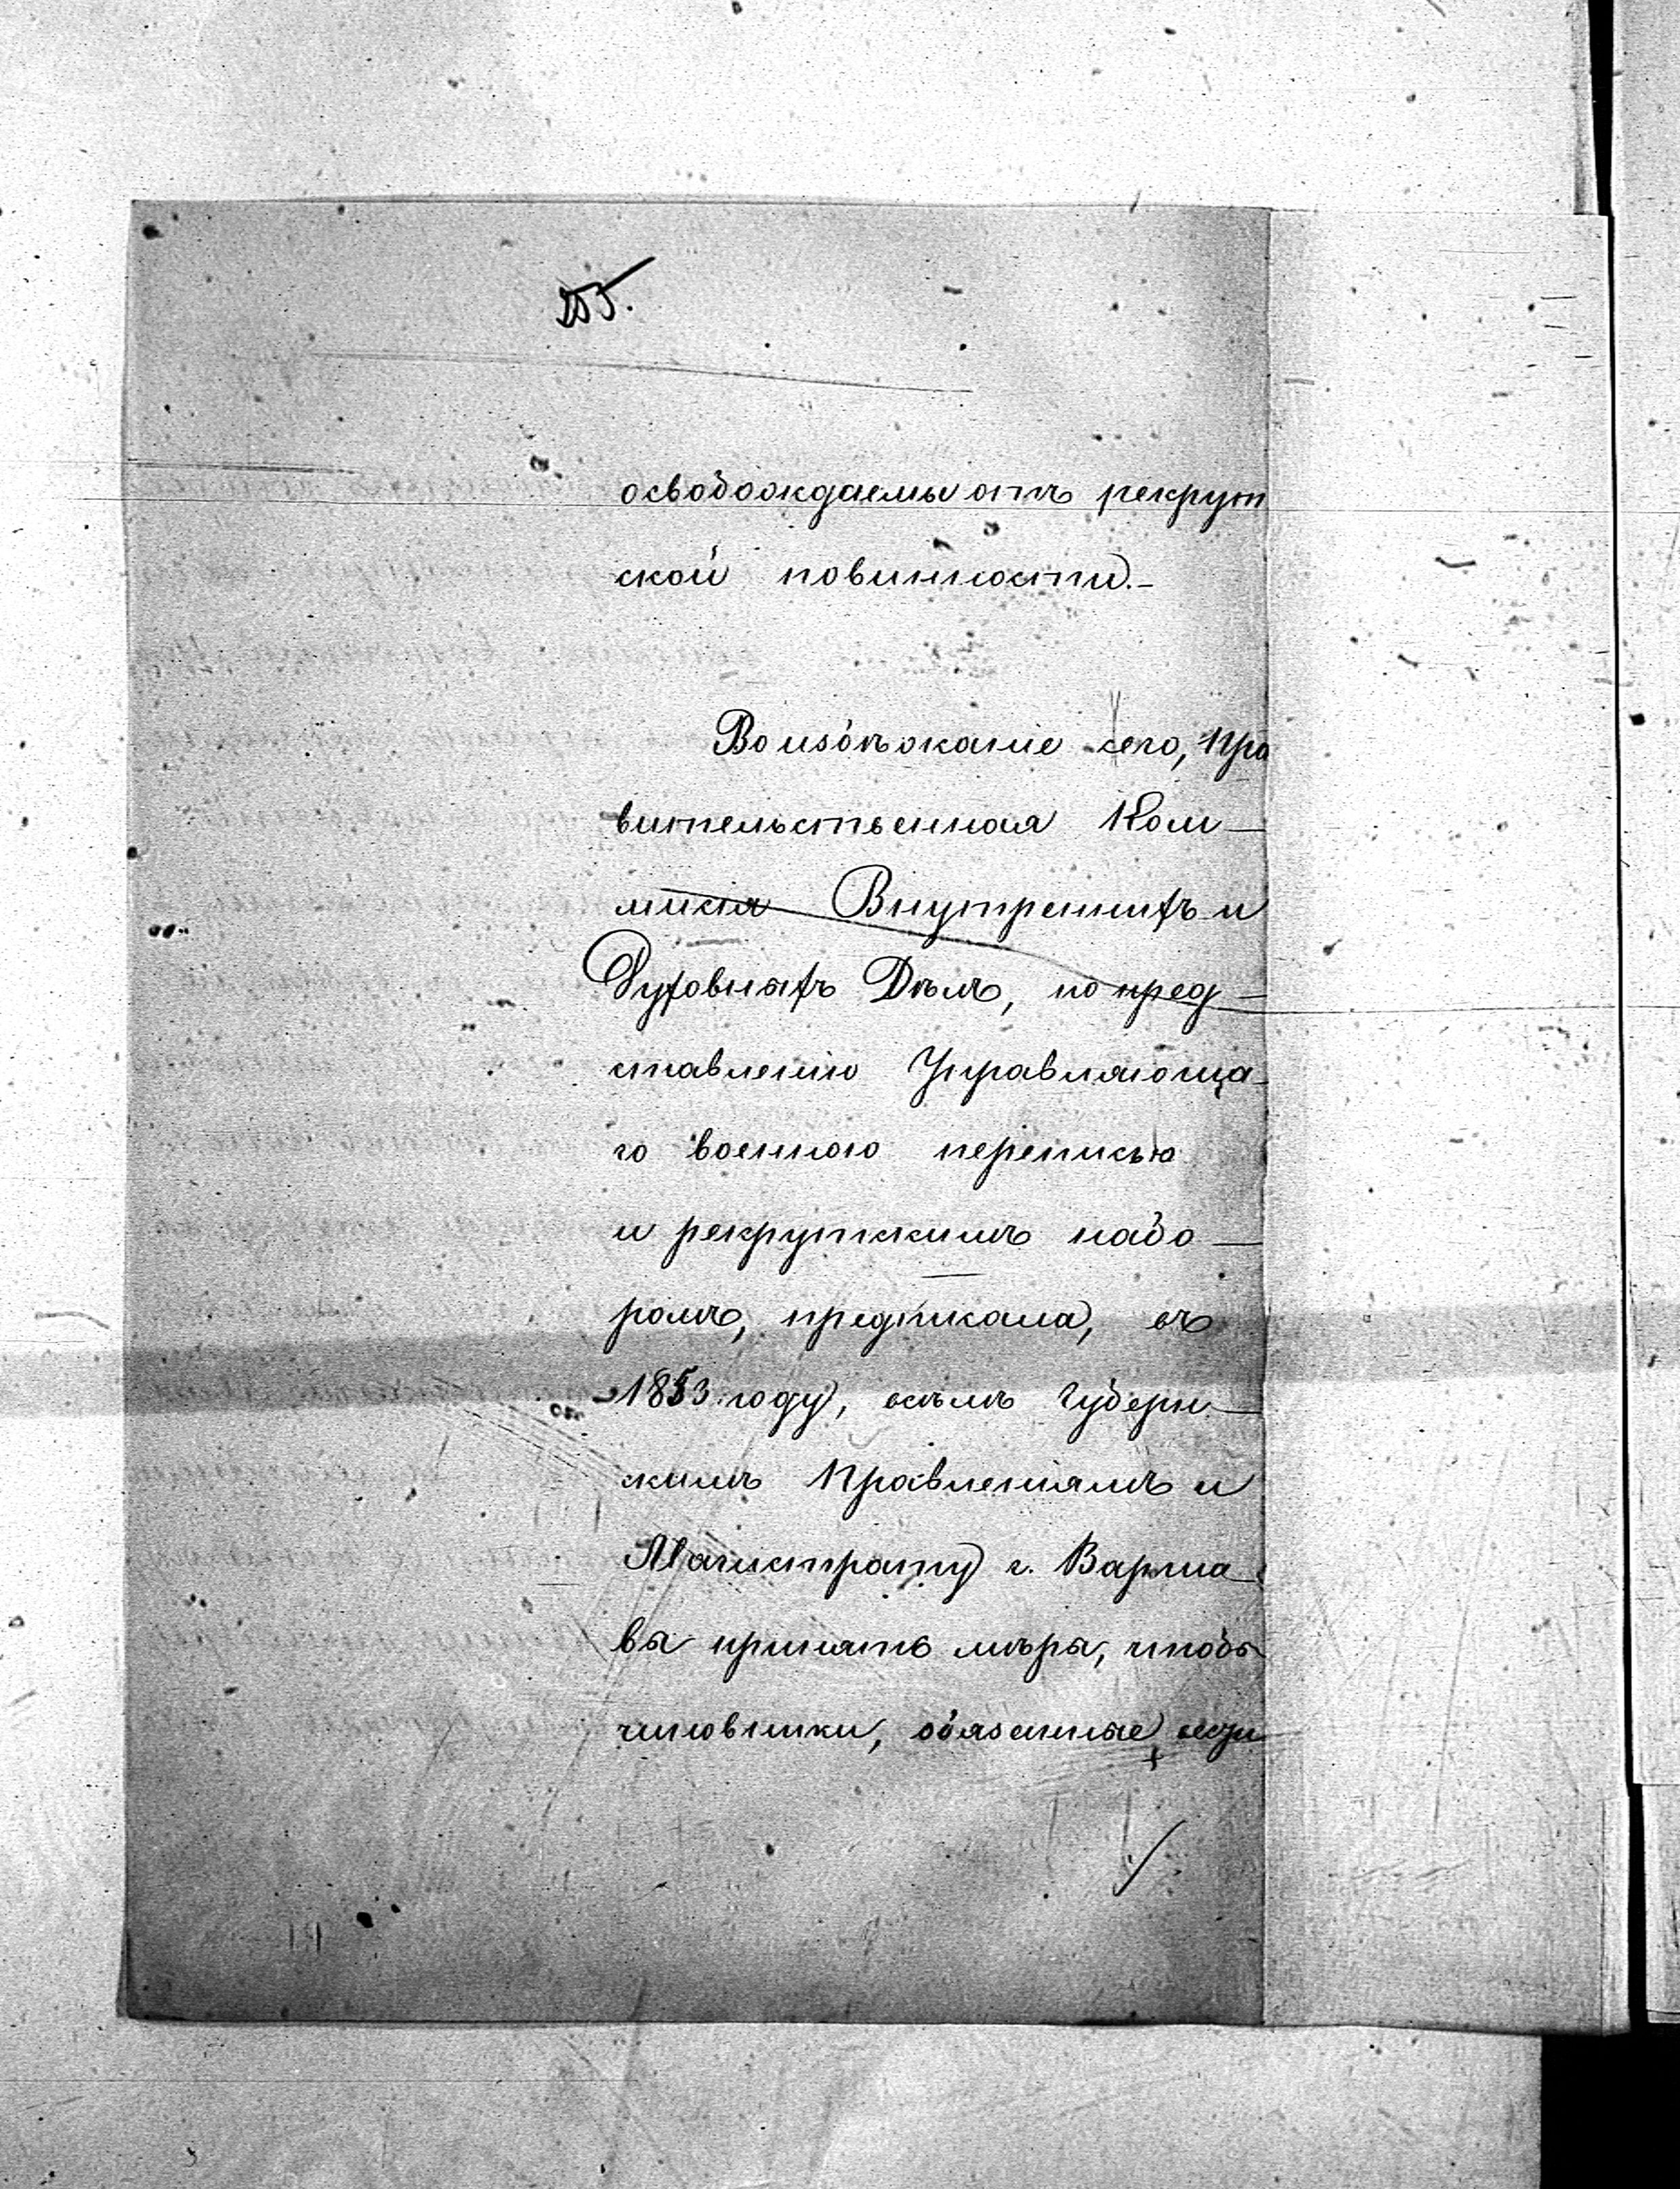 255.
освобождаемы отъ рекрут
ской повинности.-
Во избѣжаніе сего, Пра
вительственная Ком-
мисія Внутреннихъ и
Духовныхъ Дѣлъ, по пред-
ставленію Управляюща-
го военною переписью
и рекрутскимъ набо-
ромъ, предписала, въ
1853 году, всѣмъ Губерн-
скимъ Правленіямъ и
Магистрату г. Варша-
вы принять мѣры, чтобы
чиновники, обязанные